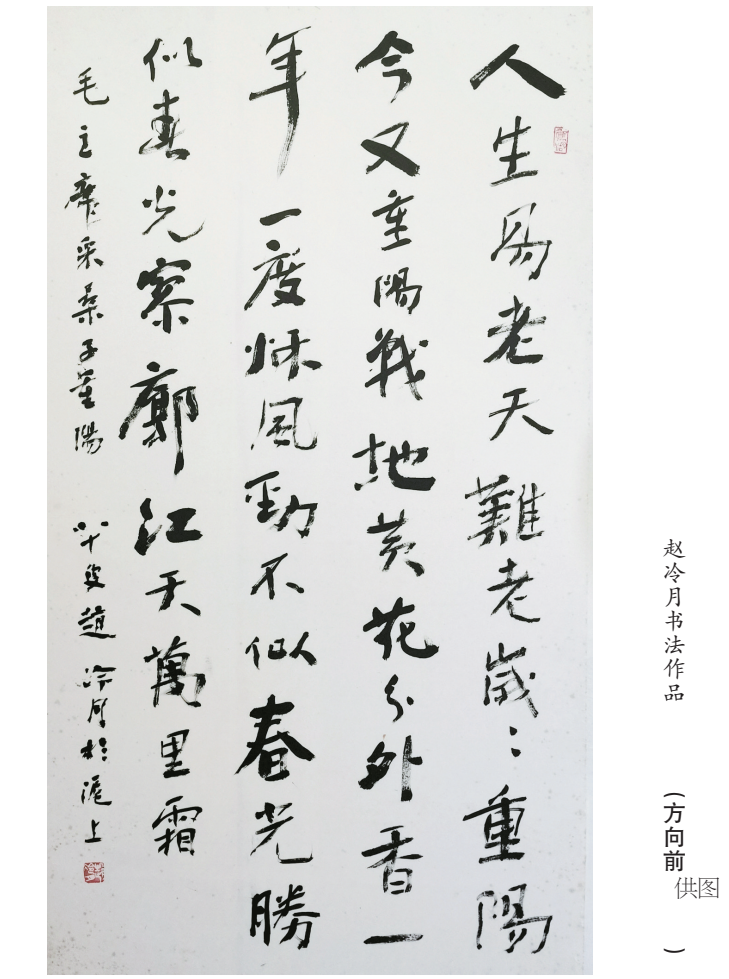 人生易老天難老歲〻重陽
今又重陽戰地黃花分外香一
年一度秌風勁不似春光勝
似春光寥廓江天萬里霜
毛主席采桑子重陽 八十叟趙冷月於滬上
赵冷月书法作品 (方向前 供图)